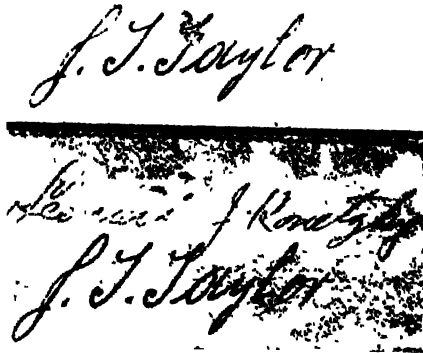 J. T. Taylor
J Konetzky
J. T. Taylor